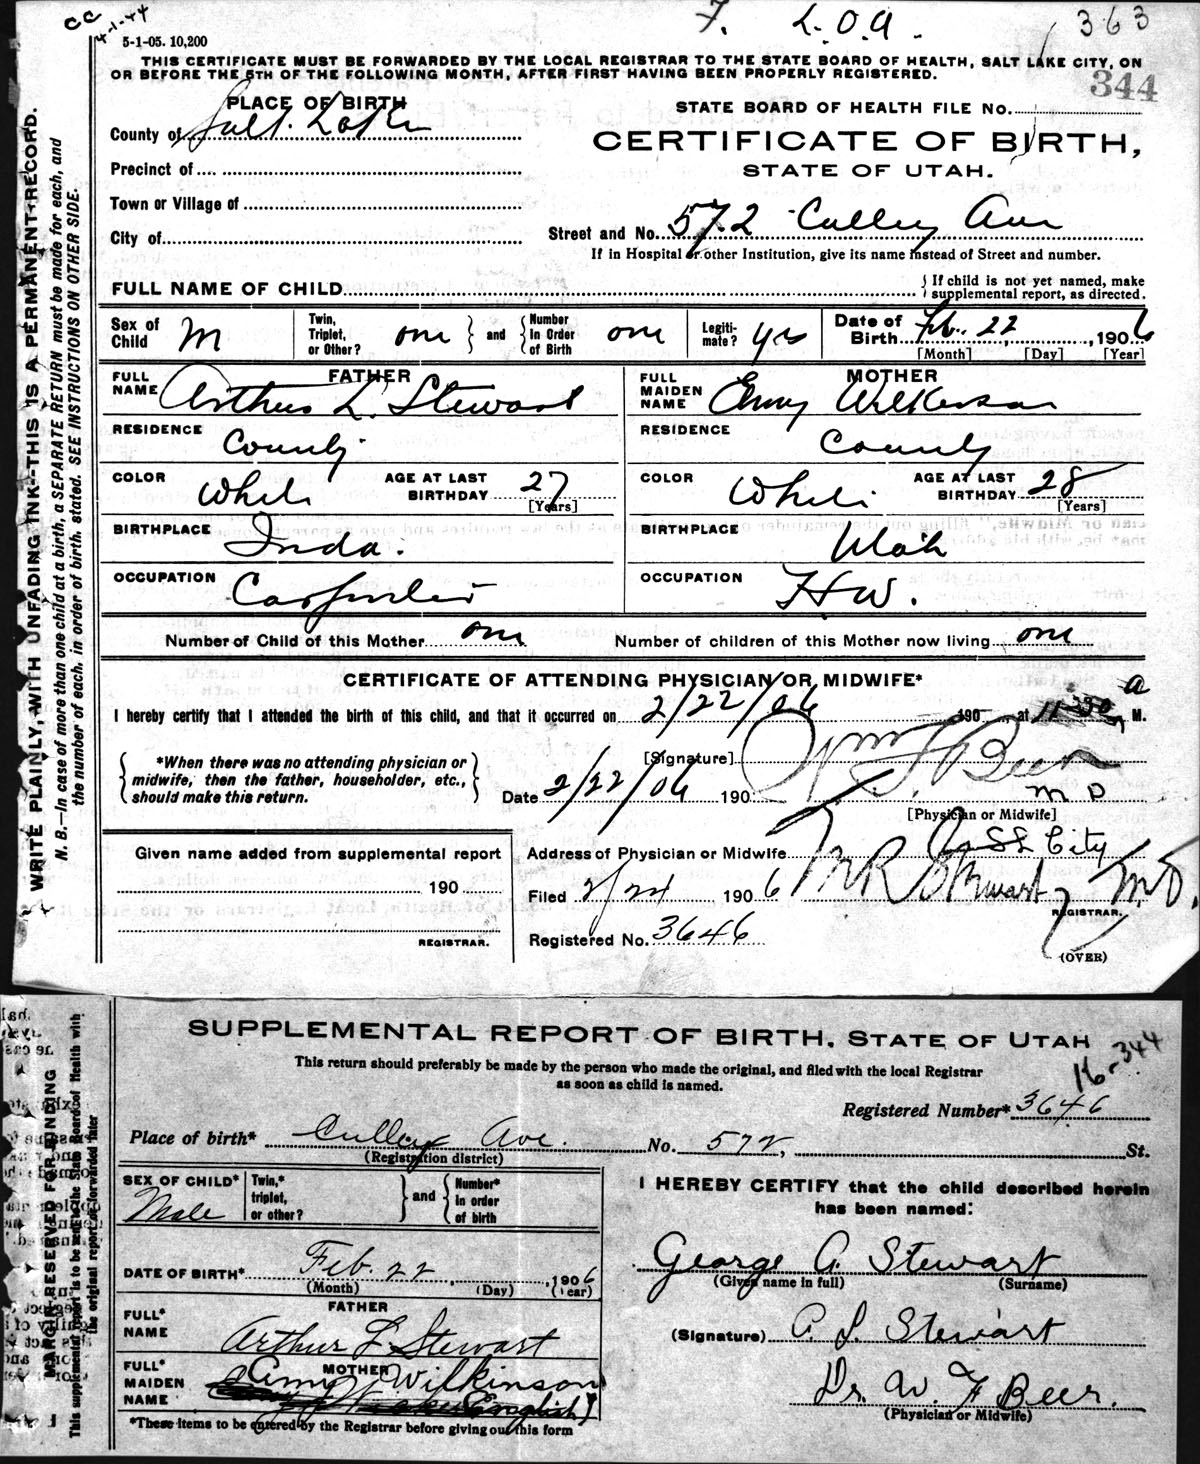 CC
4-1-44
7. L.O.A. 363
5-1-05. 10,200
THIS CERTIFICATE MUST BE FORWARDED BY THE LOCAL REGISTRAR TO THE STATE BOARD OF HEALTH, SALT LAKE CITY, ON
OR BEFORE THE 5TH OF THE FOLLOWING MONTH, AFTER FIRST HAVING BEEN PROPERLY REGISTERED.
344
WRITE PLAINLY, WITH UNFADING INK--THIS IS A PERMANENT RECORD.
N. B.—In case of more than one child at a birth, a SEPARATE RETURN must be made for each, and
the number of each, in order of birth, stated. SEE INSTRUCTIONS ON OTHER SIDE.
PLACE OF BIRTH
County of Salt Lake
Precinct of
Town or Village of
City of
STATE BOARD OF HEALTH FILE No.
CERTIFICATE OF BIRTH,
STATE OF UTAH.
Street and No. 572 Culley Ave
If in Hospital or other Institution, give its name instead of Street and number.
FULL NAME OF CHILD
{If child is not yet named, make
supplemental report, as directed.
Sex of Child M
Twin, Triplet, or Other? one } and { Number In Order of Birth one
Legiti-mate? yes
Date of Birth Feb. 22, 1906
[Month] [Day] [Year]
FATHER
FULL NAME Arthur L. Stewart
RESIDENCE County
COLOR White AGE AT LAST BIRTHDAY 27
[Years]
BIRTHPLACE Inda.
OCCUPATION Carpenter
MOTHER
FULL MAIDEN NAME Emy Wilkerson
RESIDENCE County
COLOR White AGE AT LAST BIRTHDAY 28
[Years]
BIRTHPLACE Utah
OCCUPATION H W.
Number of Child of this Mother one Number of children of this Mother now living one
CERTIFICATE OF ATTENDING PHYSICIAN OR MIDWIFE*
I hereby certify that I attended the birth of this child, and that it occurred on 2/22/06 190 at 11 30 a M.
{*When there was no attending physician or
midwife, then the father, householder, etc.,
should make this return.}
[Signature] Wm F. Beer
M D
Date 2/22/06 190
[Physician or Midwife]
Given name added from supplemental report
190
REGISTRAR.
Address of Physician or Midwife S L City
Filed 2/24 1906 M R Stewart, M.D.
REGISTRAR.
Registered No. 3646
(OVER)
SUPPLEMENTAL REPORT OF BIRTH, STATE OF UTAH
16-344
This return should preferably be made by the person who made the original, and filed with the local Registrar
as soon as child is named.
MARGIN RESERVED FOR BINDING
This supplemental report is to be sent to the State Board of Health with
the original report or forwarded later
Registered Number* 3646
Place of birth* Culley Ave. No. 572, St.
(Registration district)
SEX OF CHILD* Male
Twin,* triplet, or other? } and { Number* In order of birth
DATE OF BIRTH* Feb. 22, 1906
(Month) (Day) (Year)
FATHER
FULL* NAME Arthur L Stewart
MOTHER
FULL* MAIDEN NAME Amy Wilkinson
*These items to be entered by the Registrar before giving out this form
I HEREBY CERTIFY that the child described herein
has been named:
George A. Stewart
(Given name in full) (Surname)
(Signature) A L Stewart
Dr. W. F Beer.
(Physician or Midwife)